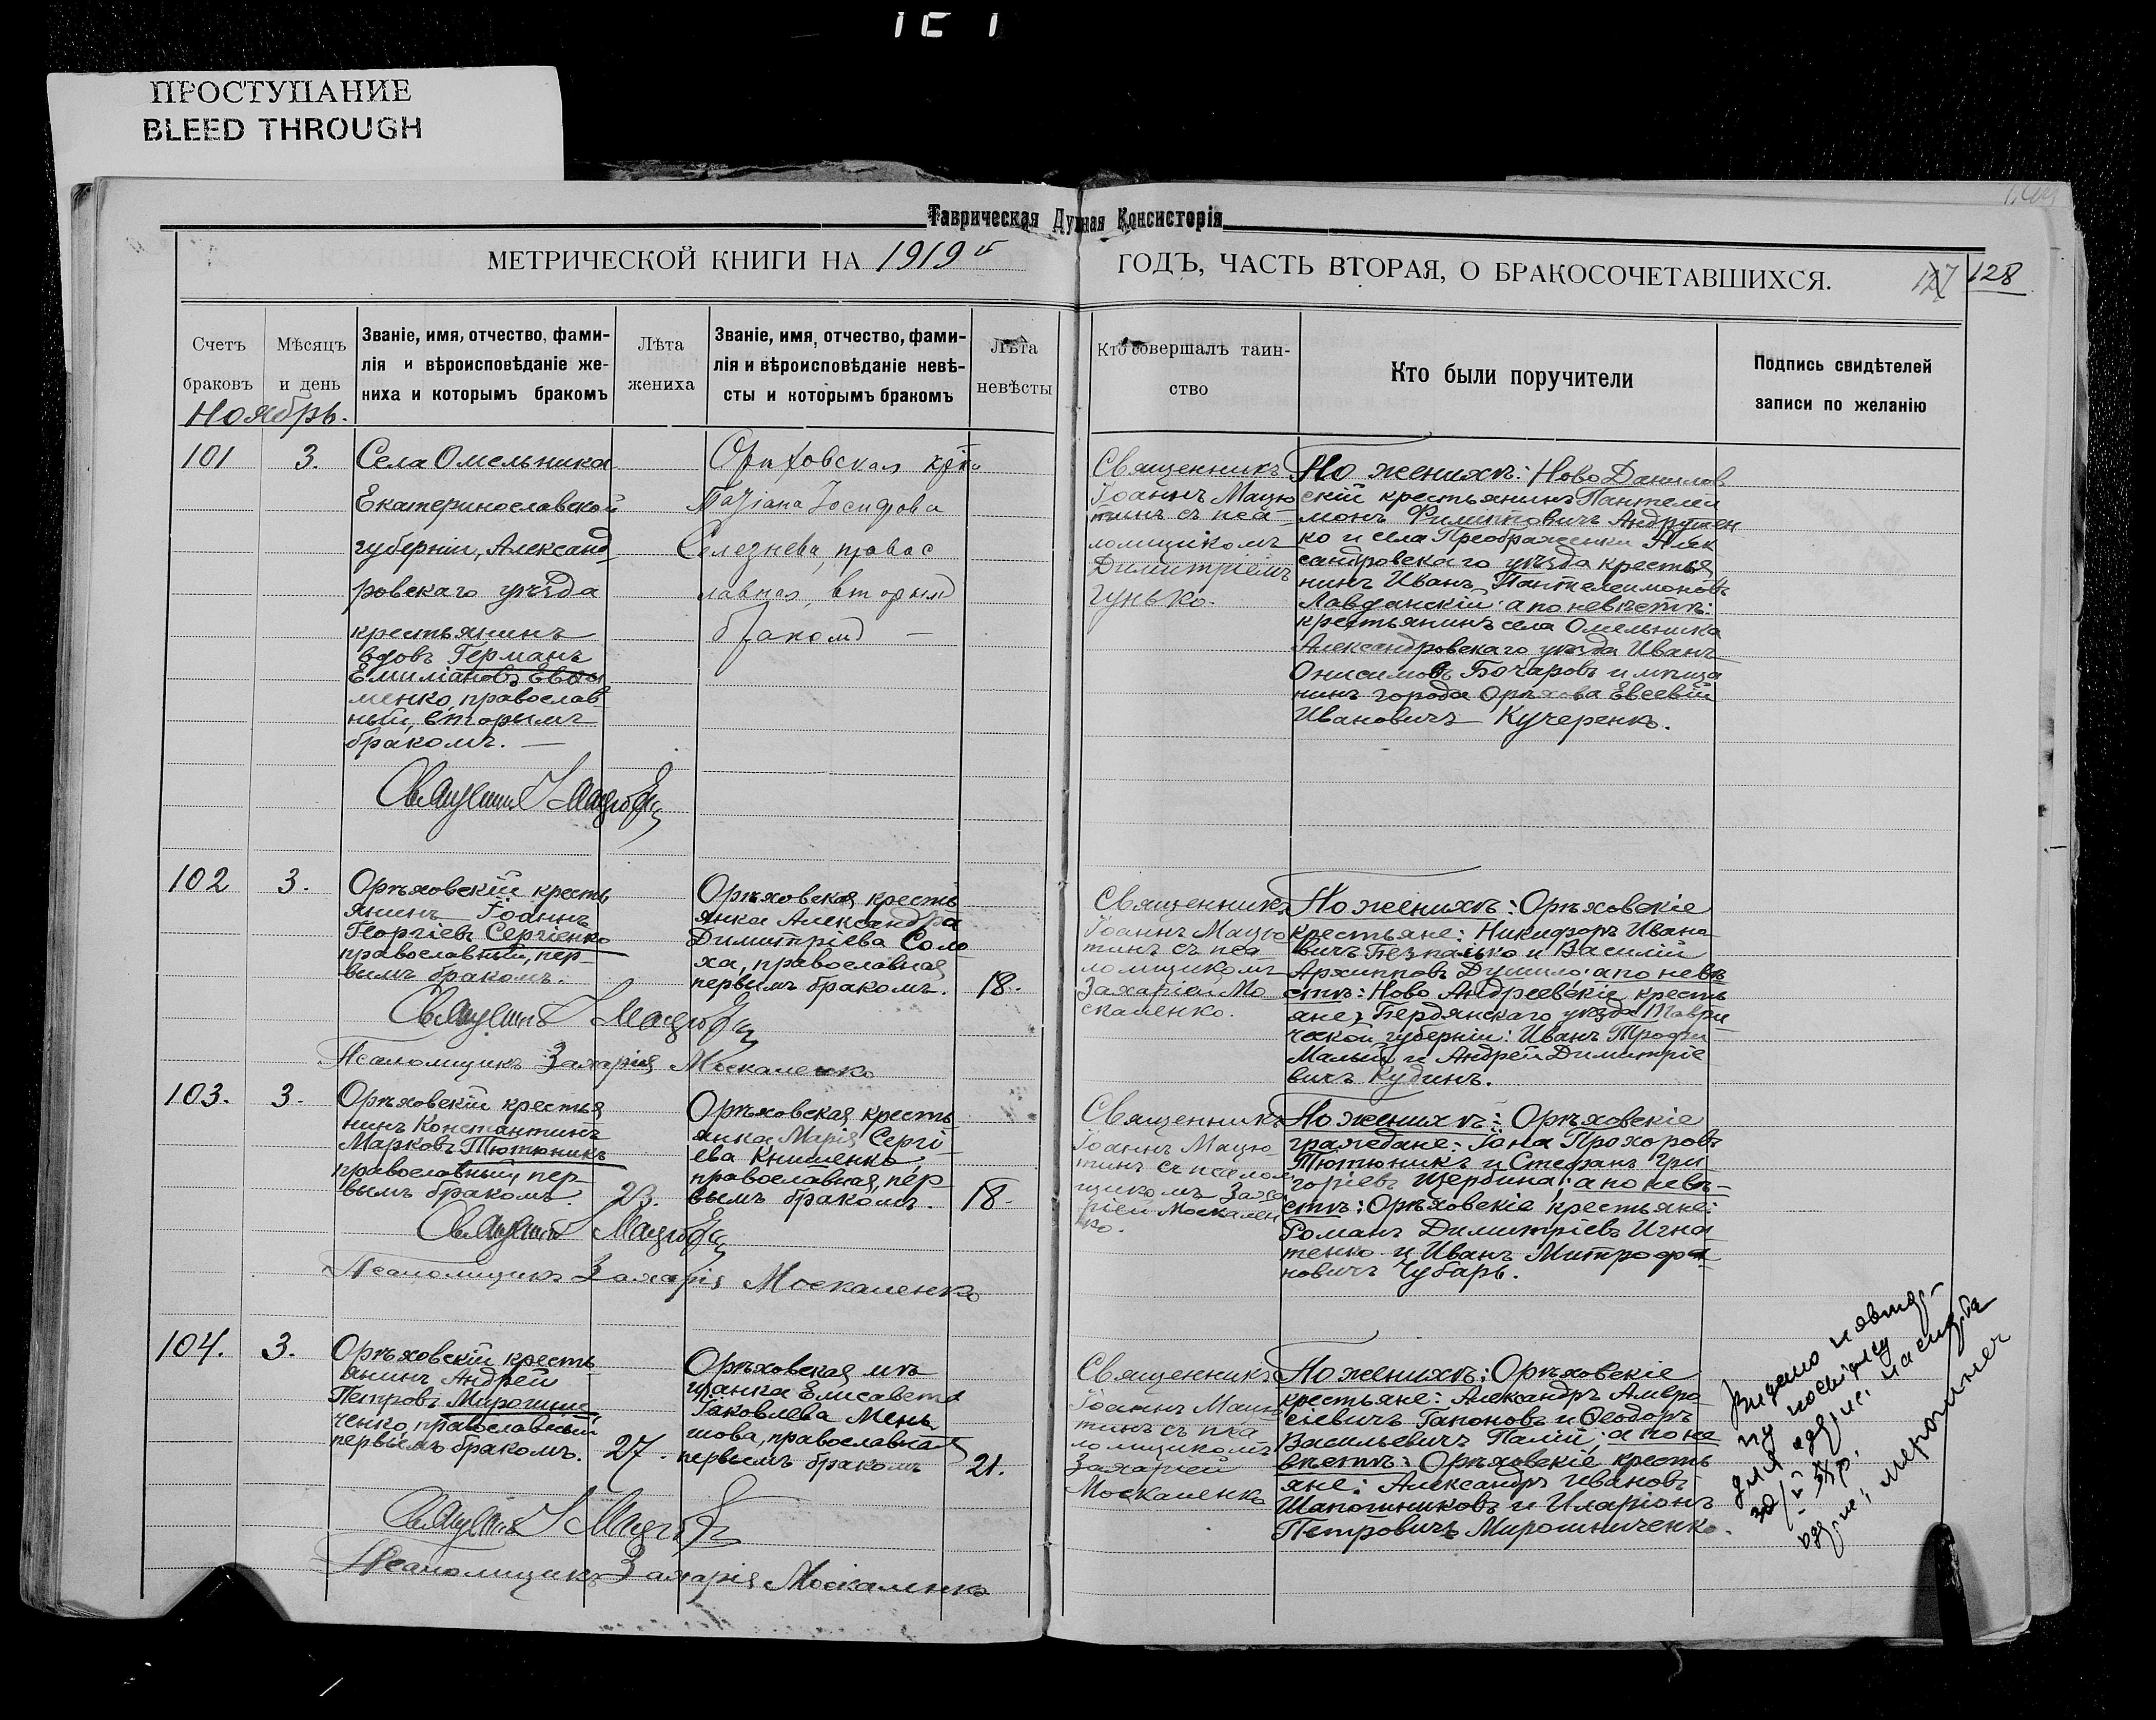 ПРОСТУПАНИЕ
BLEED THROUGH
Таврическая Духная Консисторія
МЕТРИЧЕСКОЙ КНИГИ НА 1919 й ГОДЪ, ЧАСТЬ ВТОРАЯ, О БРАКОСОЧЕТАВШИХСЯ.
127 128
Счетъ браковъ
Мѣсяцъ и день
Званіе, имя, отчество, фами-
лія и вѣроисповѣданіе же-
ниха и которымъ бракомъ
Лѣта жениха
Званіе, имя, отчество, фами-
лія и вѣроисповѣданіе невѣ-
сты и которымъ бракомъ
Лѣта невѣсты
Кто совершалъ таин-
ство
Кто были поручители
Подпись свидѣтелей
записи по желанію
Ноябрь.
101
3.
Села Омельника
Екатеринославской
губерніи, Александ-
ровскаго уѣзда
крестьянинъ
вдовъ Германъ
Емиліановъ Евфи
менко, православ
ный, вторымъ
бракомъ. —
Орѣховская кр-ка
Татіана Іосифова
Селезнева, правос
лавная, вторымъ
бракомъ —
Священникъ
Іоаннъ Мацю
тинъ съ пса-
ломщикомъ
Димитріемъ
Гунько.
По женихѣ: Ново Данилов
скій крестьянинъ Пантелеи
монъ Филипповичъ Андрущен
ко и села Преображенки Алек
сандровскаго уѣзда крестья
нинъ Иванъ Пантелеимоновъ
Лавданскій; а по невѣстѣ:
крестьянинъ села Омельника
Александровскаго уѣзда Иванъ
Онисимовъ Бочаровъ и мѣща
нинъ города Орѣхова Евсевій
Ивановичъ Кучеренко.
Священникъ І Мацютин
102
3.
Орѣховскій кресть
янинъ Іоаннъ
Георгіевъ Сергіенко
православный, пер-
вымъ бракомъ.
Орѣховская кресть
янка Александра
Димитріева Соло
ха, православная
первымъ бракомъ.
18.
Священникъ
Іоаннъ Мацю
тинъ съ пса-
ломщикомъ
Захаріей Мо
скаленко.
По женихѣ: Орѣховскіе
крестьяне: Никифоръ Ивано
вичъ Безпалько и Василій
Архипповъ Душило; а по невѣ
стѣ: Ново Андреевскіе кресть
яне, Бердянскаго уѣзда Таври
ческой губерніи: Иванъ Трофи
Малый и Андрей Димитріе
вичъ Кудинъ.
Священникъ І Мацютин
Псаломщикъ Захарія Москаленко
103.
3.
Орѣховскій крестья
нинъ Константинъ
Марковъ Тютюникъ
православный, пер
вымъ бракомъ.
23.
Орѣховская кресть
янка Марія Сергі-
ева Книшенко,
православная, пер
вымъ бракомъ.
18.
Священникъ
Іоаннъ Мацю-
тинъ съ псалом
щикомъ Заха
ріей Москален
ко.
По женихѣ: Орѣховскіе
граждане: Прохоровъ
Тютюникъ и Стефанъ Гри
горіевъ Щербина; а по невѣ-
стѣ: Орѣховскіе крестьяне:
Романъ Димитріевъ Игна
тенко и Иванъ Митрофа
новичъ Чубарь.
Священникъ Мацютин
Псаломщикъ Захарія Москаленко
104.
3.
Орѣховскій кресть
янинъ Андрей
Петровъ Мирошни
ченко, православный
первымъ бракомъ.
27.
Орѣховская мѣ
щанка Елисавета
Іаковлева Мень
шова, православная
первымъ бракомъ
21.
Священникъ
Іоаннъ Мацю
тинъ съ пса
ломщикомъ
Захаріей
Москаленко
По женихѣ: Орѣховскіе
крестьяне: Александръ Амвро
сіевичъ Гапоновъ и Ѳеодоръ
Васильевичъ Палій; а по не
вѣстѣ: Орѣховскіе кресть
яне: Александръ Ивановъ
Шапошниковъ и Иларіонъ
Петровичъ Мирошниченко.
Видано
Священникъ І Мацютин
Псаломщикъ Захарія Москаленко